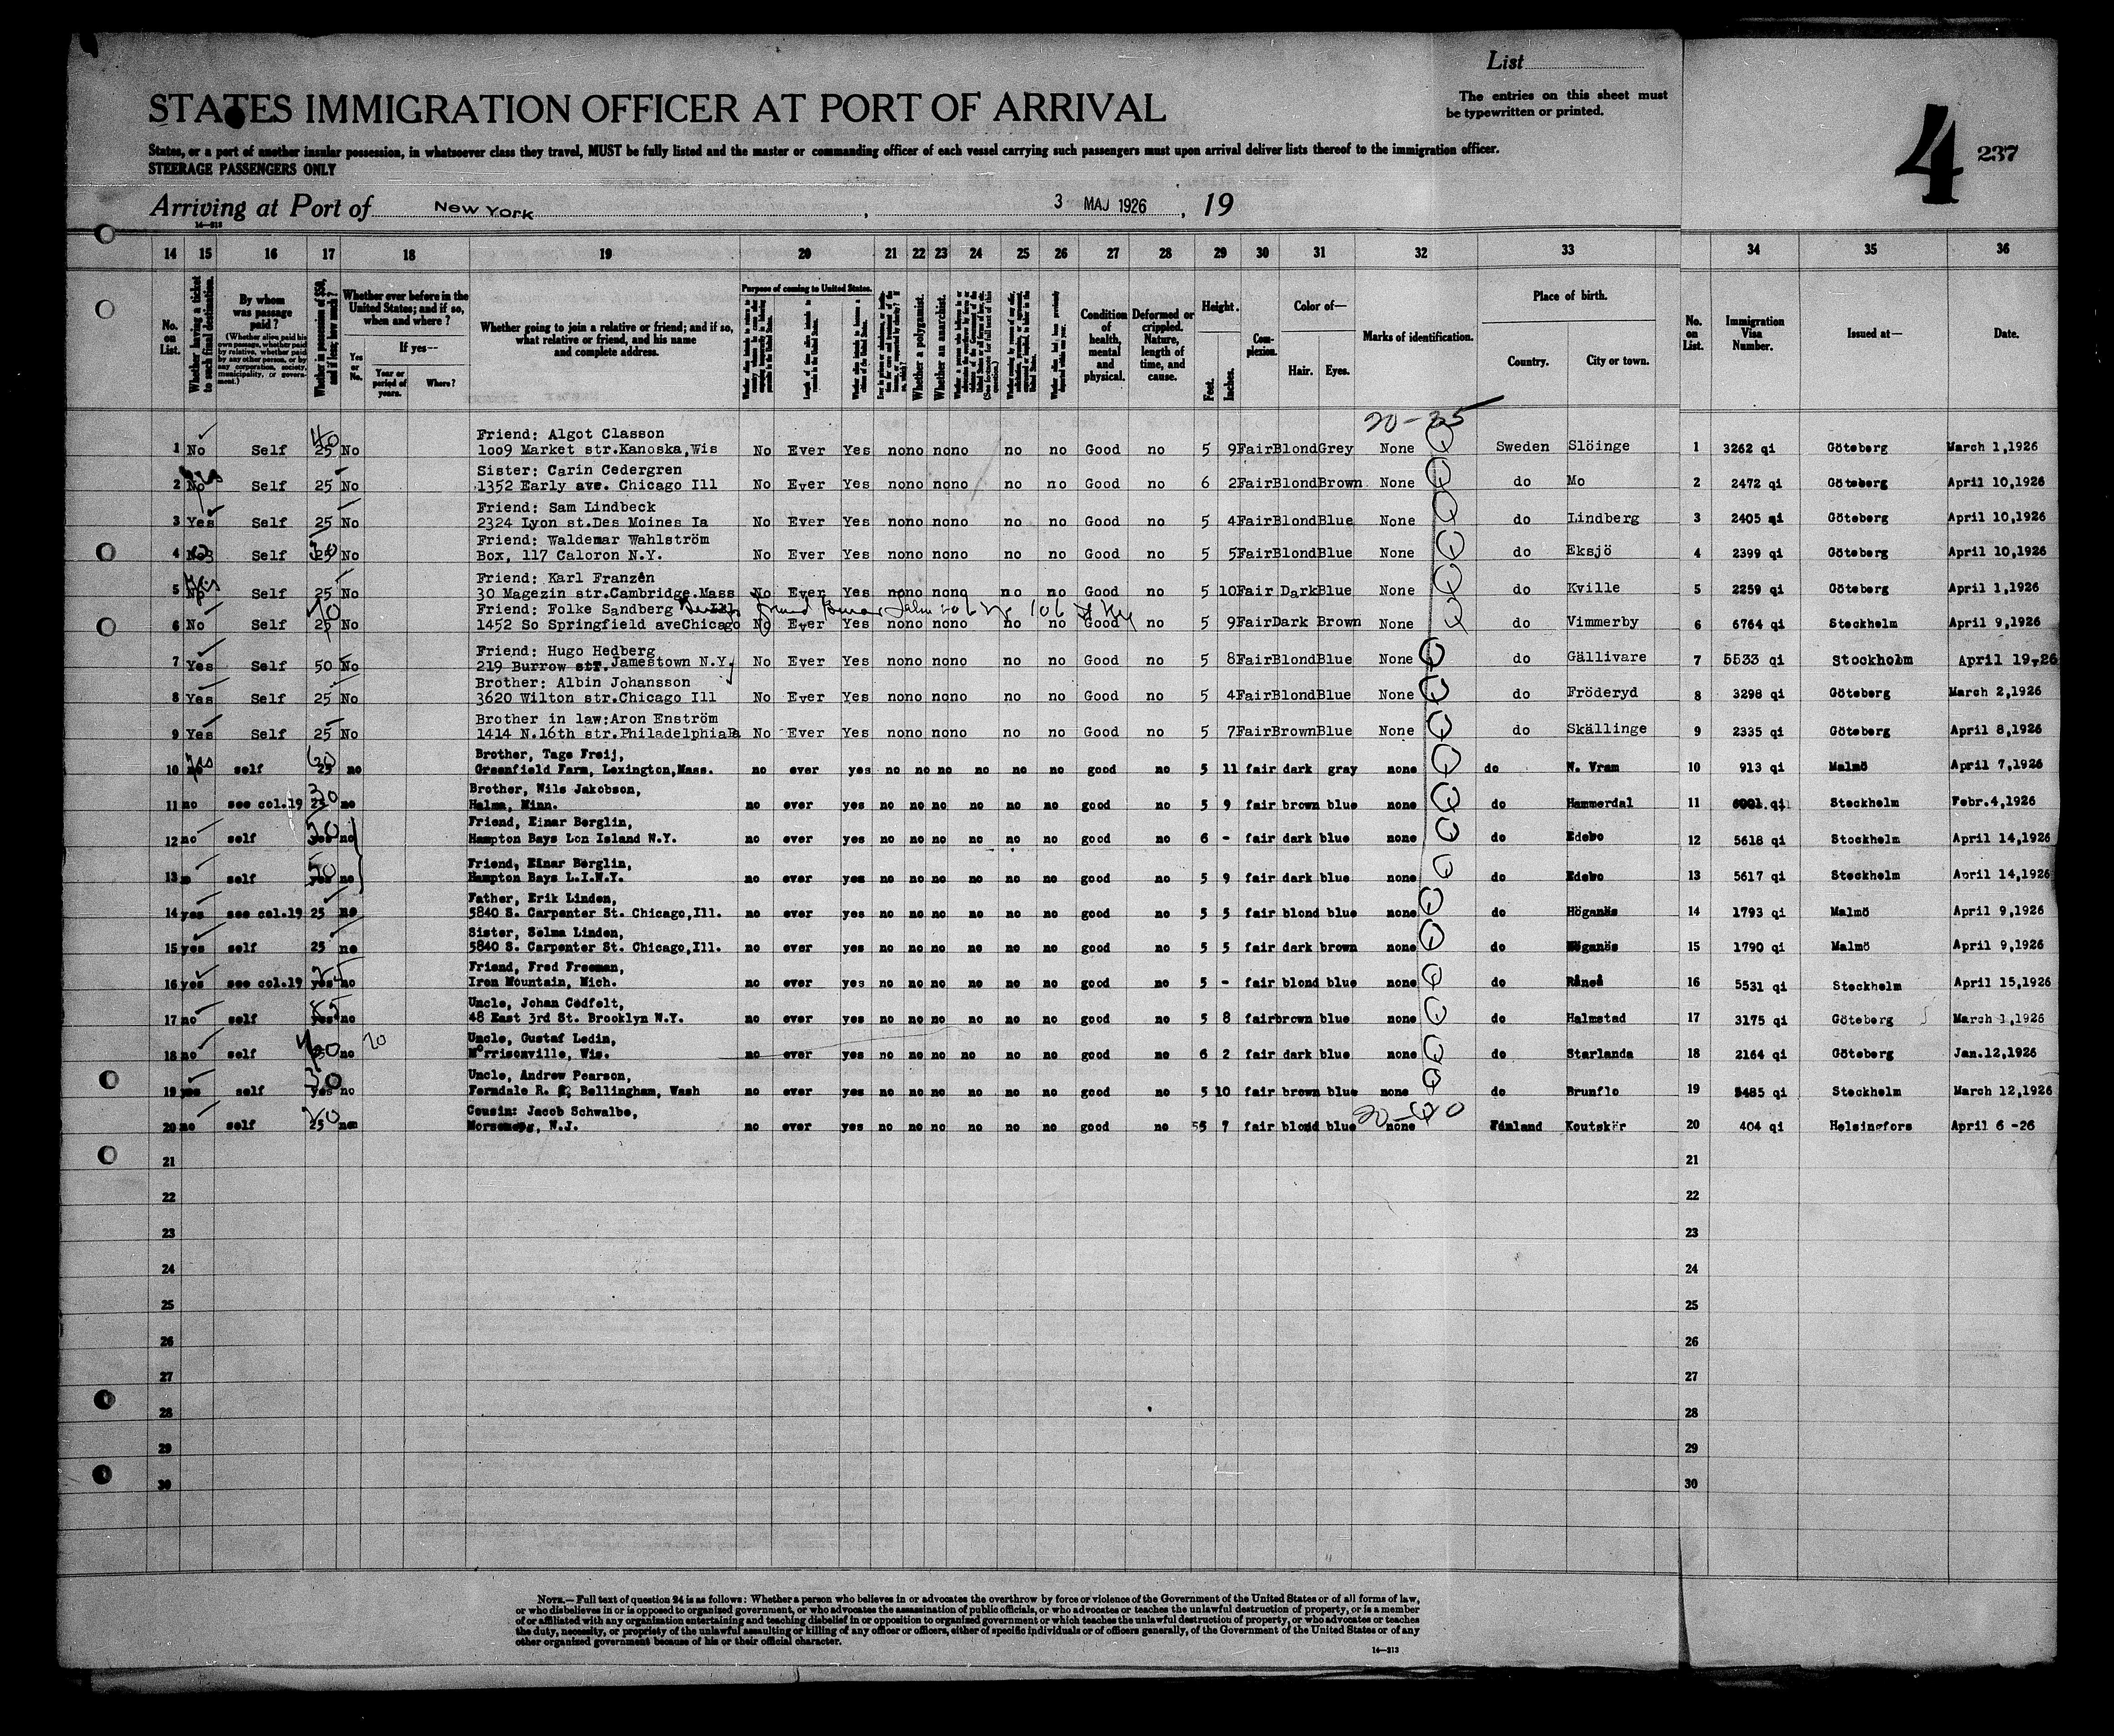 List
STATES IMMIGRATION OFFICER AT PORT OF ARRIVAL
The entries on this sheet must
be typewritten or printed.
4 237
States, or a port of another insular possession, in whatsoever class they travel, MUST be fully listed and the master or commanding officer of each vessel carrying such passengers must upon arrival deliver lists thereof to the immigration officer.
STEERAGE PASSENGERS ONLY
Arriving at Port of New York, 3 MAJ 1926, 19
14—213
14 15 16 17 18 19 20 21 22 23 24 25 26 27 28 29 30 31 32 33 34 35 36
No. on List.
Whether having a ticket to such final destination.
By whom was passage paid?
(Whether alien paid his own passage, whether paid by relative, whether paid by any other person, or by any corporation, society, municipality, or government.)
Whether in possession of $50, and if less, how much?
Whether ever before in the United States; and if so, when and where?
Yes or No.
If yes—
Year or period of years.
Where?
Whether going to join a relative or friend; and if so, what relative or friend, and his name and complete address.
Purpose of coming to United States.
Length of time alien intends to remain in the United States.
Whether alien intends to become a citizen of the United States.
Whether a polygamist.
Whether an anarchist.
Condition of health, mental and physical.
Deformed or crippled. Nature, length of time, and cause.
Height.
Feet. Inches.
Complexion.
Color of—
Hair. Eyes.
Marks of identification.
Place of birth.
Country. City or town.
No. on List.
Immigration Visa Number.
Issued at—
Date.
20-35
Friend: Algot Classon
1 No Self 25 40 No 1oo9 Market str.Kanoska,Wis No Ever Yes no no no no no no Good no 5 9 Fair Blond Grey None Sweden Slöinge 1 3262 qi Göteborg March 1,1926
Sister: Carin Cedergren
2 No Self 25 No 1352 Early ave. Chicago Ill No Ever Yes no no no no no no Good no 6 2 Fair Blond Brown None do Mo 2 2472 qi Göteborg April 10,1926
Friend: Sam Lindbeck
3 Yes Self 25 No 2324 Lyon st.Des Moines Ia No Ever Yes no no no no no no Good no 5 4 Fair Blond Blue None do Lindberg 3 2405 qi Göteborg April 10,1926
Friend: Waldemar Wahlström
4 Self 25 No Box, 117 Caloron N.Y. No Ever Yes no no no no no no Good no 5 5 Fair Blond Blue None do Eksjö 4 2399 qi Göteborg April 10,1926
Friend: Karl Franzén
5 No Self 25 No 30 Magezin str.Cambridge.Mass No Ever Yes no no no no no no Good no 5 10 Fair Dark Blue None do Kville 5 2259 qi Göteborg April 1,1926
Friend: Folke Sandberg
6 No Self 25 No 1452 So Springfield aveChicago No Ever Yes no no no no no no Good no 5 9 Fair Dark Brown None do Vimmerby 6 6764 qi Stockholm April 9,1926
Friend: Hugo Hedberg
7 Yes Self 50 No 219 Burrow str. Jamestown N.Y. No Ever Yes no no no no no no Good no 5 8 Fair Blond Blue None do Gällivare 7 5533 qi Stockholm April 19-26
Brother: Albin Johansson
8 Yes Self 25 No 3620 Wilton str.Chicago Ill No Ever Yes no no no no no no Good no 5 4 Fair Blond Blue None do Fröderyd 8 3298 qi Göteborg March 2,1926
Brother in law:Aron Enström
9 Yes Self 25 No 1414 N.16th str.PhiladelphiaPa No Ever Yes no no no no no no Good no 5 7 Fair Brown Blue None do Skällinge 9 2335 qi Göteborg April 8,1926
Brother, Tage Freij,
10 no self 25 no Greenfield Farm, Lexington,Mass. no ever yes no no no no no no good no 5 11 fair dark gray none do N. Vram 10 913 qi Malmö April 7,1926
Brother, Nils Jakobson,
11 no see col.19 25 30 no Halma, Minn. no ever yes no no no no no no good no 5 9 fair brown blue none do Hammerdal 11 qi Stockholm Febr.4,1926
Friend, Einar Berglin,
12 no self yes 50 no Hampton Bays Lon Island N.Y. no ever yes no no no no no no good no 6 - fair dark blue none do Edebo 12 5618 qi Stockholm April 14,1926
Friend, Einar Berglin,
13 self yes 50 no Hampton Bays L.I.N.Y. no ever yes no no no no no no good no 5 9 fair dark blue none do Edebo 13 5617 qi Stockholm April 14,1926
Father, Erik Linden,
14 yes see col.19 25 no 5840 S. Carpenter St. Chicago,Ill. no ever yes no no no no no no good no 5 5 fair blond blue none do Höganäs 14 1793 qi Malmö April 9,1926
Sister, Selma Linden,
15 yes self 25 no 5840 S. Carpenter St. Chicago,Ill. no ever yes no no no no no no good no 5 5 fair dark brown none do Höganäs 15 1790 qi Malmö April 9,1926
Friend, Fred Freeman,
16 yes see col.19 yes 25 no Iron Mountain, Mich. no ever yes no no no no no no good no 5 - fair blond blue none do Råneå 16 5531 qi Stockholm April 15,1926
Uncle, Johan Cedfelt,
17 no self yes 85 no 48 East 3rd St. Brooklyn N.Y. no ever yes no no no no no no good no 5 8 fair brown blue none do Halmstad 17 3175 qi Göteborg March 1,1926
Uncle, Gustaf Ledin,
18 no self no 20 Morrisonville, Wis. no ever yes no no no no no no good no 6 2 fair dark blue none do Starlanda 18 2164 qi Göteborg Jan.12,1926
Uncle, Andrew Pearson,
19 yes self yes 30 no Ferndale R. 2, Bellingham, Wash no ever yes no no no no no no good no 5 10 fair brown blue none do Brunflo 19 5485 qi Stockholm March 12,1926
Cousin: Jacob Schwalbe,
20 no self 25 N.J. no ever yes no no no no no no good no 5 7 fair blond blue none Finland Koutskär 20 404 qi Helsingfors April 6 -26
21 21
22 22
23 23
24 24
25 25
26 26
27 27
28 28
29 29
30 30
NOTE.—Full text of question 24 is as follows: Whether a person who believes in or advocates the overthrow by force or violence of the Government of the United States or of all forms of law,
or who disbelieves in or is opposed to organized government, or who advocates the assassination of public officials, or who advocates or teaches the unlawful destruction of property, or is a member
of or affiliated with any organization entertaining and teaching disbelief in or opposition to organized government or which teaches the unlawful destruction of property, or who advocates or teaches
the duty, necessity, or propriety of the unlawful assaulting or killing of any officer or officers, either of specific individuals or of officers generally, of the Government of the United States or of any
other organized government because of his or their official character.
14—213